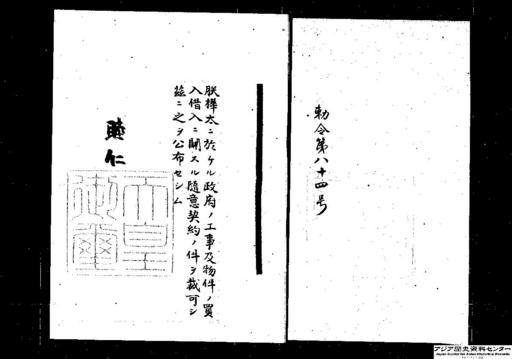 勅令第八十四号
朕樺太ニ於ケル政府ノ工事及物件ノ買
入借入ニ関スル随意契約ノ件ヲ裁可シ
茲ニ之ヲ公布セシム
睦仁
天皇御璽
アジア歴史資料センター
Japan Center for Asian Historical Records